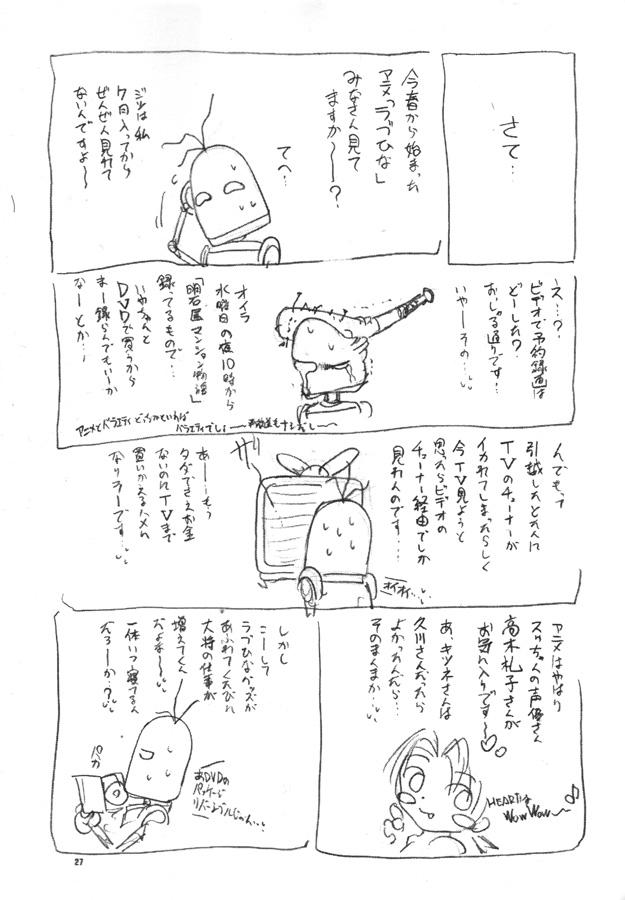 さて…
今春から始まった
アニメ「ラブひな」
みなさん見て
ますか～？
てへ…
ジツは私
7月入ってから
ぜんぜん見れて
ないんですよ～
え…？
ビデオで予約録画は
どーした？
おじゃる通りです…
いやーその…
オイラ
水曜日の夜10時から
「明石屋マンション物語」
録ってるもので…
いやちゃんと
DVDで買うから
まー録らんでもいーか
なーとか…
アニメとバラエティどっちかといえば
バラエティでしょー
んでもって
引越ししたとたんに
TVのチューナーが
イカれてしまったらしく
今TV見ようと
思ったらビデオの
チューナー経由でしか
見れんのです…
オイオイ…
あー…もう
タダでさえお金
ないのにTVまで
買いかえるハメに
なりソーです…
アニメはやはり
スゥちゃんの声優さん
高木礼子さんが
お気に入りです～♡
あ、キツネさんは
久川さんだったら
よかったんだが…
そのまんまか…
HEARTは
WOW WOW～♪
しかし
こーして
ラブひなグッズが
あふれてくるたびに
大将の仕事が
増えてくん
だよな～
一体いつ寝てるん
だろーか？
パカ
あDVDの
パッケージ
リバーシブルじゃん…
27